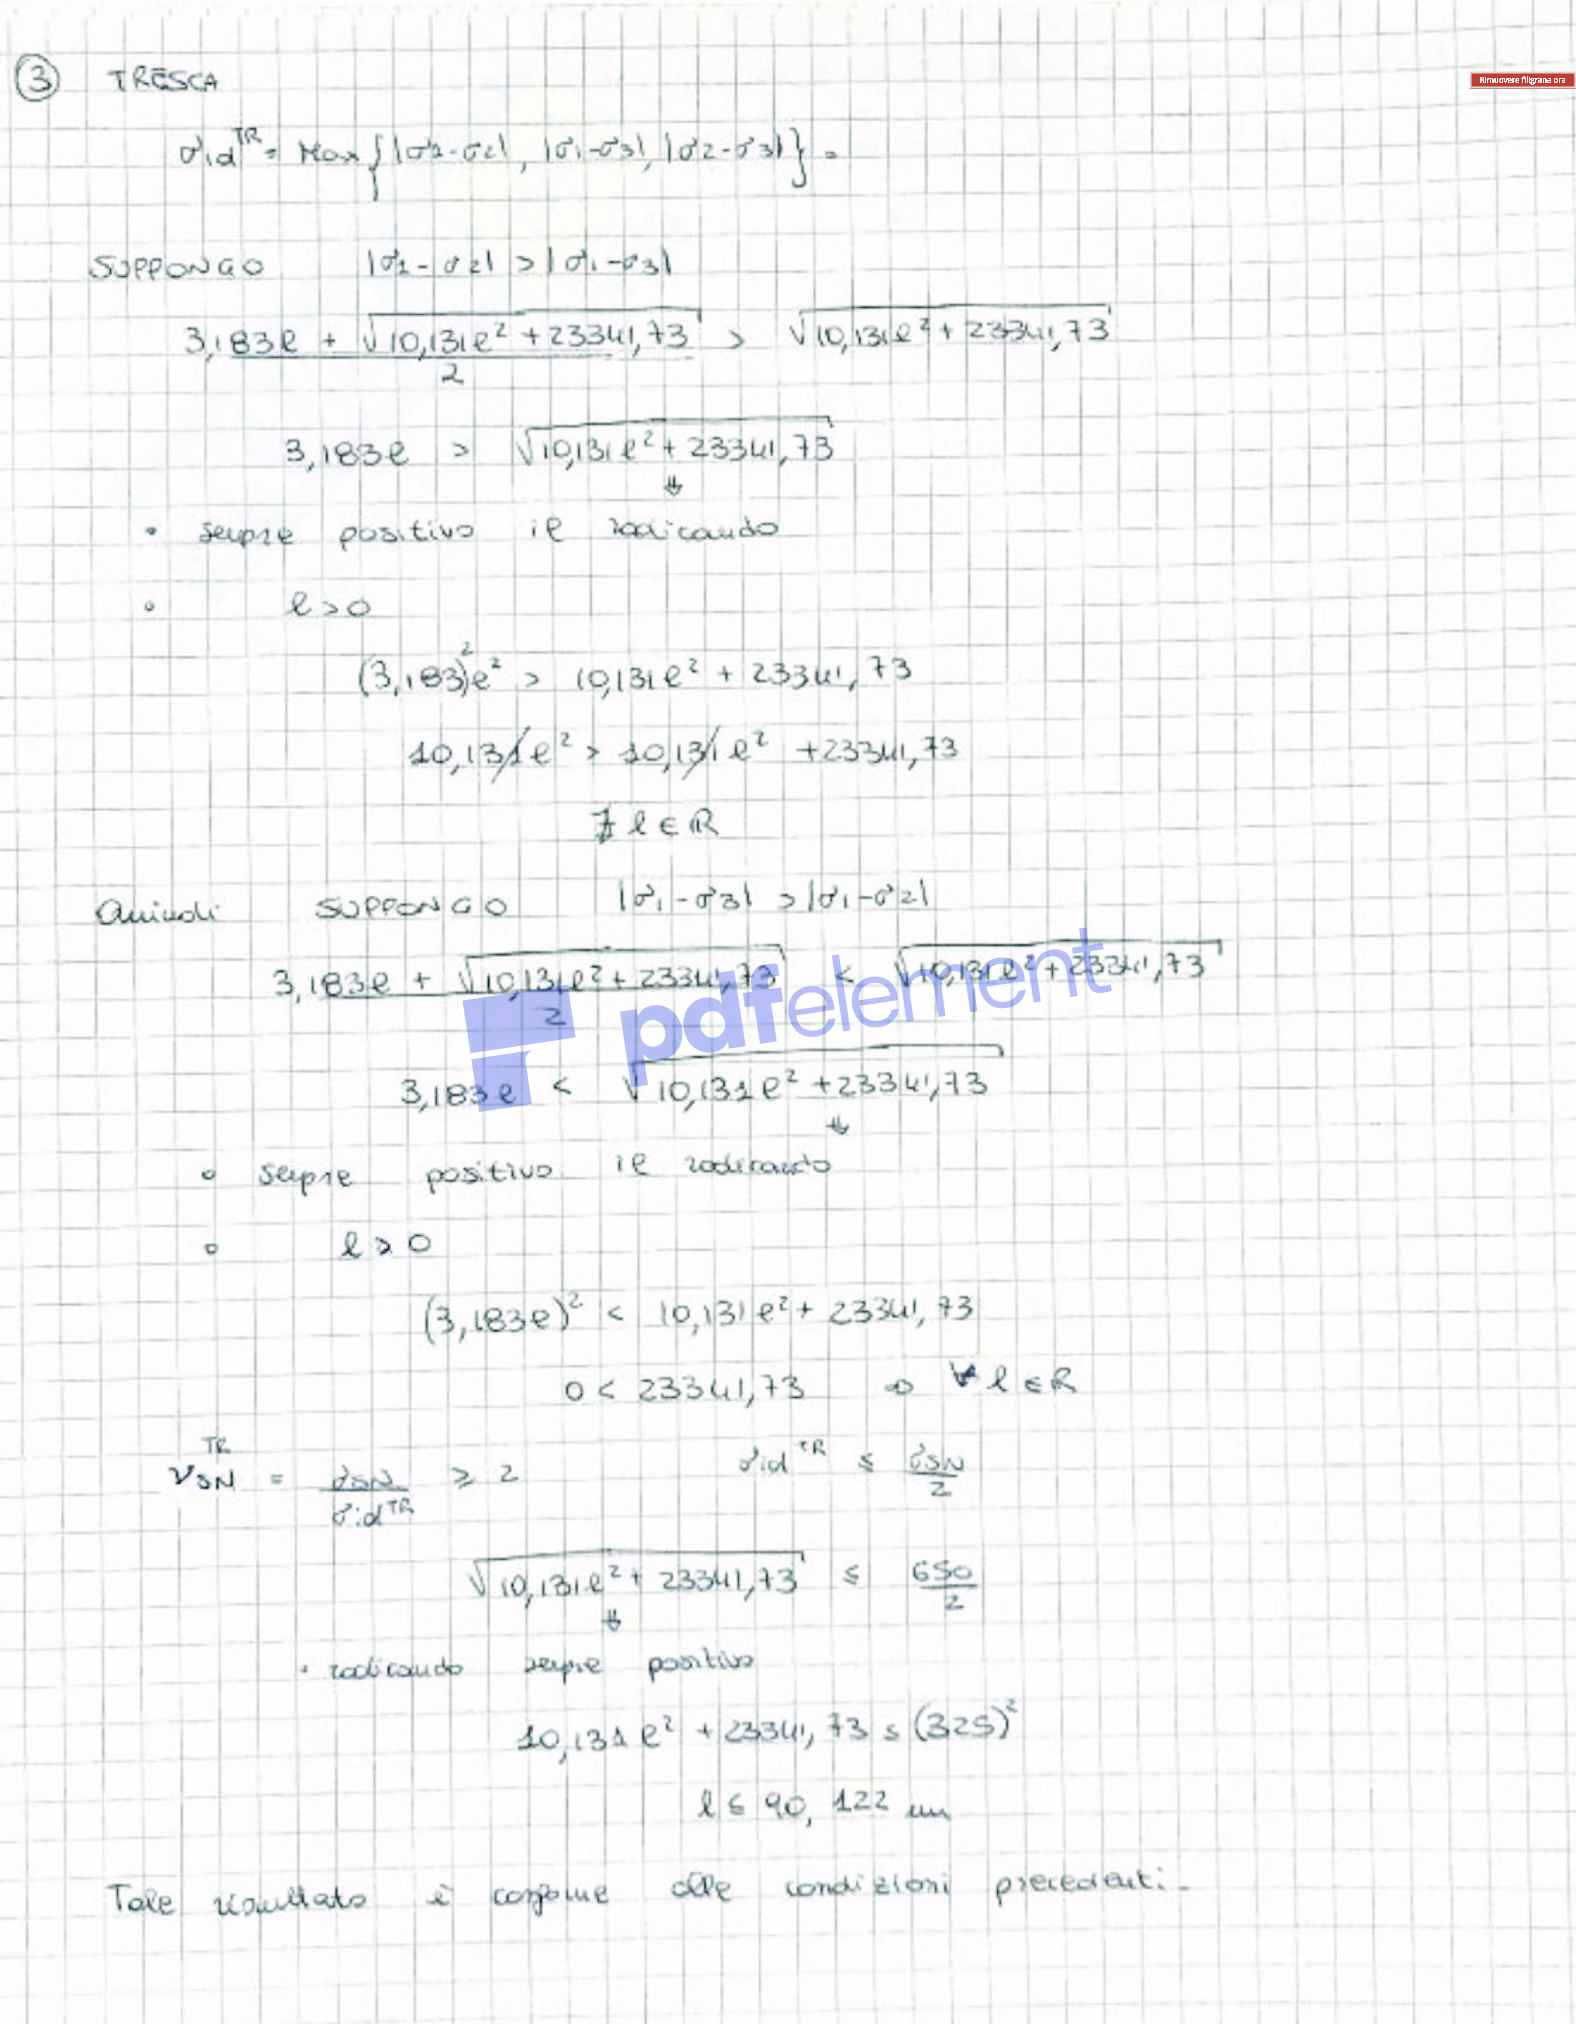 ③ TRESCA
Rimuovere filigrana ora
σid^TR = Max {|σ1-σ2|, |σ1-σ3|, |σ2-σ3|} =
SUPPONGO |σ1-σ2| > |σ1-σ3|
(3,183l + √(10,131l² + 23341,73))/2 > √(10,131l² + 23341,73)
3,183l > √(10,131l² + 23341,73)
⇓
• sempre positivo il radicando
• l>0
(3,183)²l² > 10,131l² + 23341,73
10,131l² > 10,131l² + 23341,73
∄ l ∈ R
Quindi SUPPONGO |σ1-σ3| > |σ1-σ2|
(3,183l + √(10,131l² + 23341,73))/2 < √(10,131l² + 23341,73)
pdfelement
3,183l < √(10,131l² + 23341,73)
⇓
• sempre positivo il radicando
• l > 0
(3,183l)² < 10,131l² + 23341,73
0 < 23341,73 ⇒ ∀ l ∈ R
νSN^TR = σSN/σid^TR ≥ 2 σid^TR ≤ σSN/2
√(10,131l² + 23341,73) ≤ 650/2
⇓
• radicando sempre positivo
10,131l² + 23341,73 ≤ (325)²
l ≤ 90,122 mm
Tale risultato è conforme alle condizioni precedenti.